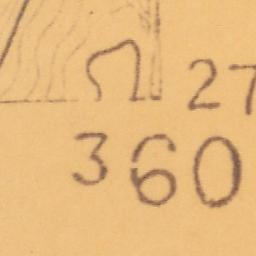 27
360